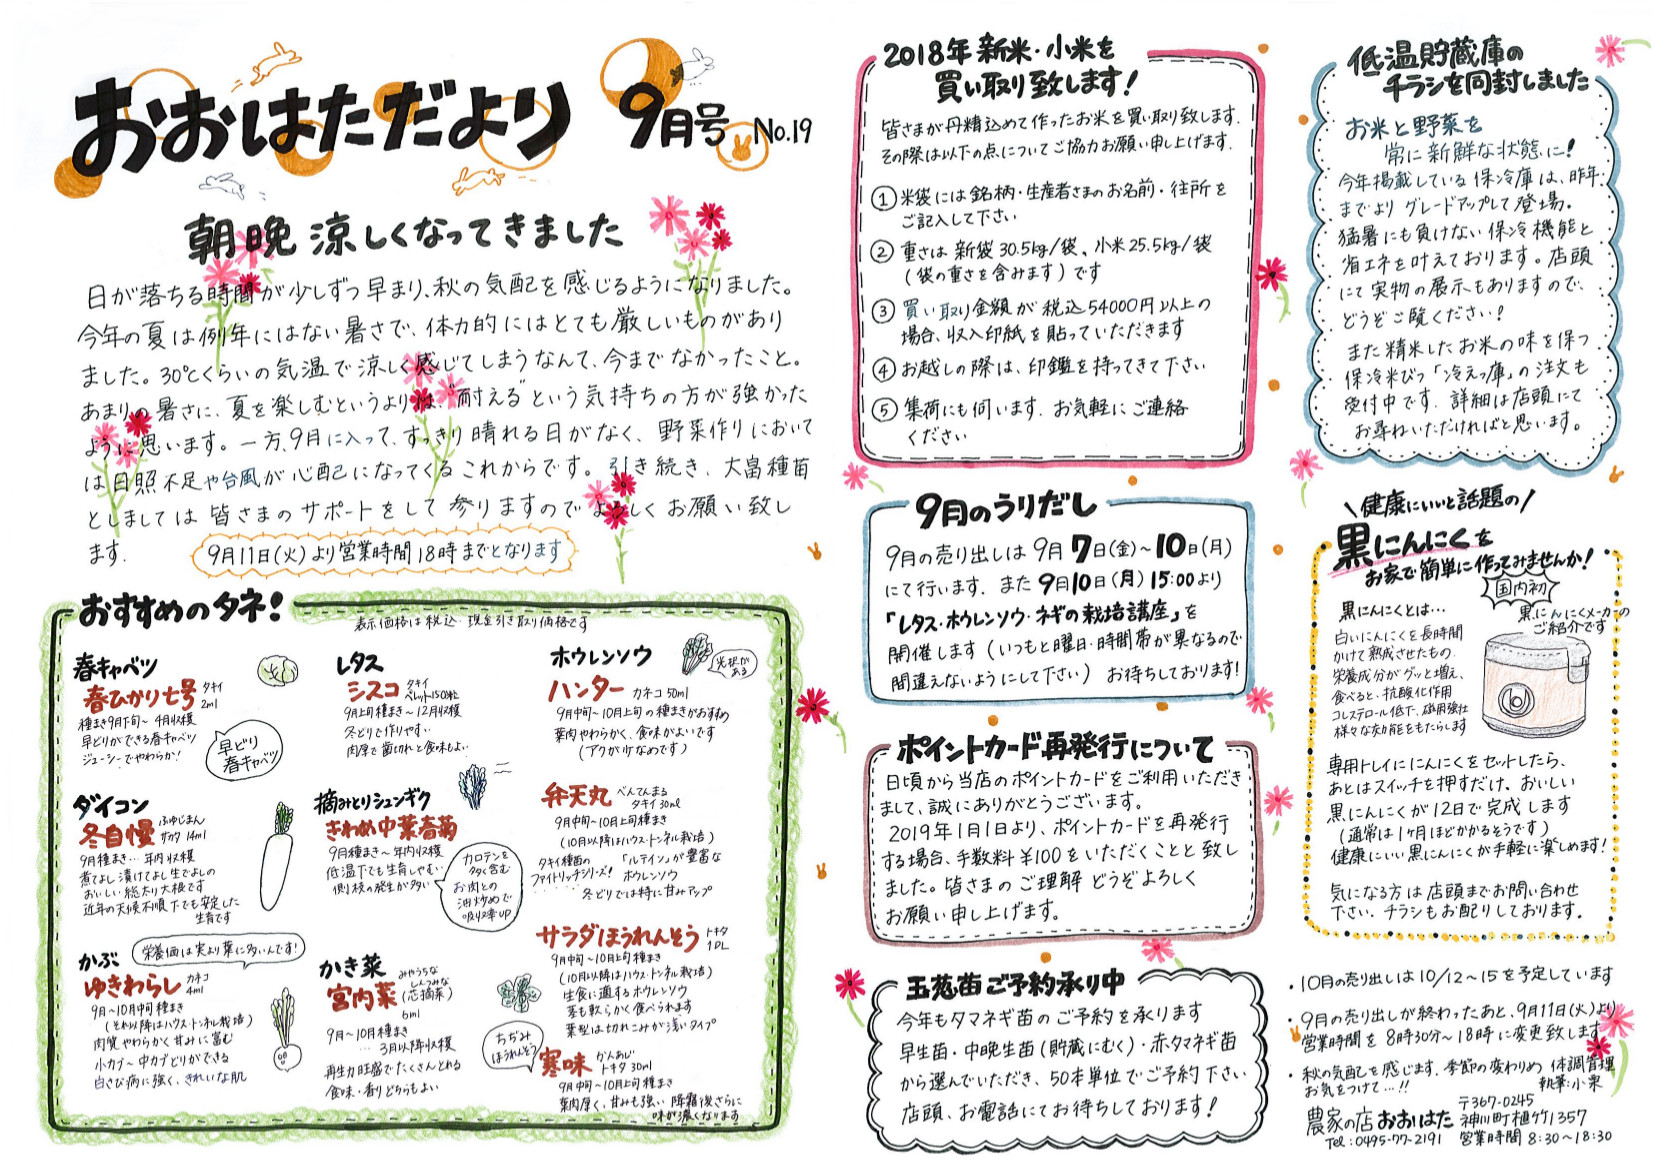 おおはただより 9月号 No.19
朝晩 涼しくなってきました
日が落ちる時間が少しずつ早まり、秋の気配を感じるようになりました。
今年の夏は例年にはない暑さで、体力的にはとても厳しいものがあり
ました。30℃くらいの気温で涼しく感じてしまうなんて、今までなかったこと。
あまりの暑さに、夏を楽しむというよりは、"耐える"という気持ちの方が強かった
ように思います。一方、9月に入って、すっきり晴れる日がなく、野菜作りにおいて
は日照不足や台風が心配になってくるこれからです。引き続き、大畠種苗
としましては皆さまのサポートをして参りますのでよろしくお願い致し
ます。
9月11日(火)より営業時間18時までとなります
おすすめのタネ!
表示価格は税込・現金引き取り価格です
春キャベツ
春ひかり七号 タキイ
2ml
種まき9月下旬～4月収穫
早どりができる春キャベツ
ジューシーでやわらか!
早どり
春キャベツ
ダイコン
冬自慢 ふゆじまん
サカタ 14ml
9月種まき…年内収穫
煮てよし漬けてよし生でよしの
おいしい総太り大根です
近年の天候不順下でも安定した
生育です
かぶ
栄養価は実より葉に多いんです!
ゆきわらし カネコ
4ml
9月～10月中旬種まき
(それ以降はハウス・トンネル栽培)
肉質やわらかく甘みに富む
小カブ～中カブどりができる
白さび病に強く、きれいな肌
レタス
シスコ タキイ
ペレット150粒
9月上旬種まき～12月収穫
冬どりで作りやすい
肉厚で歯切れと食味もよい
摘みとりシュンギク
きわめ中葉春菊
9月種まき～年内収穫
低温下でも生育しやすい
側枝の発生が多い
カロテンを
多く含む
お肉との
油炒めで
吸収率UP
かき菜
宮内菜 みやうちな
しんつみな
(芯摘菜)
6ml
9月～10月種まき
…3月以降収穫
再生力旺盛でたくさんとれる
食味・香りどちらもよい
ホウレンソウ
光沢が
ある
ハンター カネコ 50ml
9月中旬～10月上旬の種まきがおすすめ
葉肉やわらかく、食味がよいです
(アクが少なめです)
弁天丸 べんてんまる
タキイ 30ml
9月中旬～10月上旬種まき
(10月以降はハウス・トンネル栽培)
タキイ種苗の
ファイトリッチシリーズ!
「ルテイン」が豊富な
ホウレンソウ
冬どりでは特に甘みアップ
サラダほうれんそう トキタ
1DL
9月中旬～10月上旬種まき
(10月以降はハウス・トンネル栽培)
生食に適するホウレンソウ
茎も軟らかく食べられます
葉型は切れこみが浅いタイプ
ちぢみ
ほうれんそう
寒味 かんあじ
トキタ 30ml
9月中旬～10月上旬種まき
葉肉厚く、甘みも強い 降霜後さらに
味が濃くなります
2018年 新米・小米を
買い取り致します!
皆さまが丹精込めて作ったお米を買い取り致します.
その際は以下の点についてご協力お願い申し上げます.
① 米袋には銘柄・生産者さまのお名前・住所を
ご記入して下さい
② 重さは新袋30.5kg/袋、小米25.5kg/袋
(袋の重さを含みます)です
③ 買い取り金額が税込54000円以上の
場合、収入印紙を貼っていただきます
④ お越しの際は、印鑑を持ってきて下さい
⑤ 集荷にも伺います.お気軽にご連絡
ください
9月のうりだし
9月の売り出しは9月7日(金)～10日(月)
にて行います.また9月10日(月)15:00より
「レタス・ホウレンソウ・ネギの栽培講座」を
開催します(いつもと曜日・時間帯が異なるので
間違えないようにして下さい) お待ちしております!
ポイントカード再発行について
日頃から当店のポイントカードをご利用いただき
まして、誠にありがとうございます。
2019年1月1日より、ポイントカードを再発行
する場合、手数料¥100をいただくことと致し
ました。皆さまのご理解 どうぞよろしく
お願い申し上げます。
玉葱苗ご予約承り中
今年もタマネギ苗のご予約を承ります
早生苗・中晩生苗(貯蔵にむく)・赤タマネギ苗
から選んでいただき、50本単位でご予約下さい
店頭、お電話にてお待ちしております!
低温貯蔵庫の
チラシを同封しました
お米と野菜を
常に新鮮な状態に!
今年掲載している保冷庫は、昨年
までよりグレードアップして登場。
猛暑にも負けない保冷機能と
省エネを叶えております。店頭
にて実物の展示もありますので、
どうぞご覧ください!
また精米したお米の味を保つ
保冷米びつ「冷えっ庫」の注文も
受付中です.詳細は店頭にて
お尋ねいただければと思います。
\健康にいいと話題の/
黒にんにくを
お家で簡単に作ってみませんか!
国内初
黒にんにくメーカーの
ご紹介です
黒にんにくとは…
白いにんにくを長時間
かけて熟成させたもの.
栄養成分がグッと増え、
食べると、抗酸化作用
コレステロール低下、疲労強壮
様々な効能をもたらします
専用トレイににんにくをセットしたら、
あとはスイッチを押すだけ。おいしい
黒にんにくが12日で完成します
(通常は1ヶ月ほどかかるそうです)
健康にいい黒にんにくが手軽に楽しめます!
気になる方は店頭までお問い合わせ
下さい.チラシもお配りしております.
・10月の売り出しは10/12～15を予定しています
・9月の売り出しが終わったあと、9月11日(火)より
営業時間を8時30分～18時に変更致します
・秋の気配を感じます.季節の変わりめ 体調管理
お気をつけて…!! 執筆:小栗
農家の店おおはた 〒367-0245
神川町植竹1357
Tel:0495-77-2191 営業時間 8:30～18:30